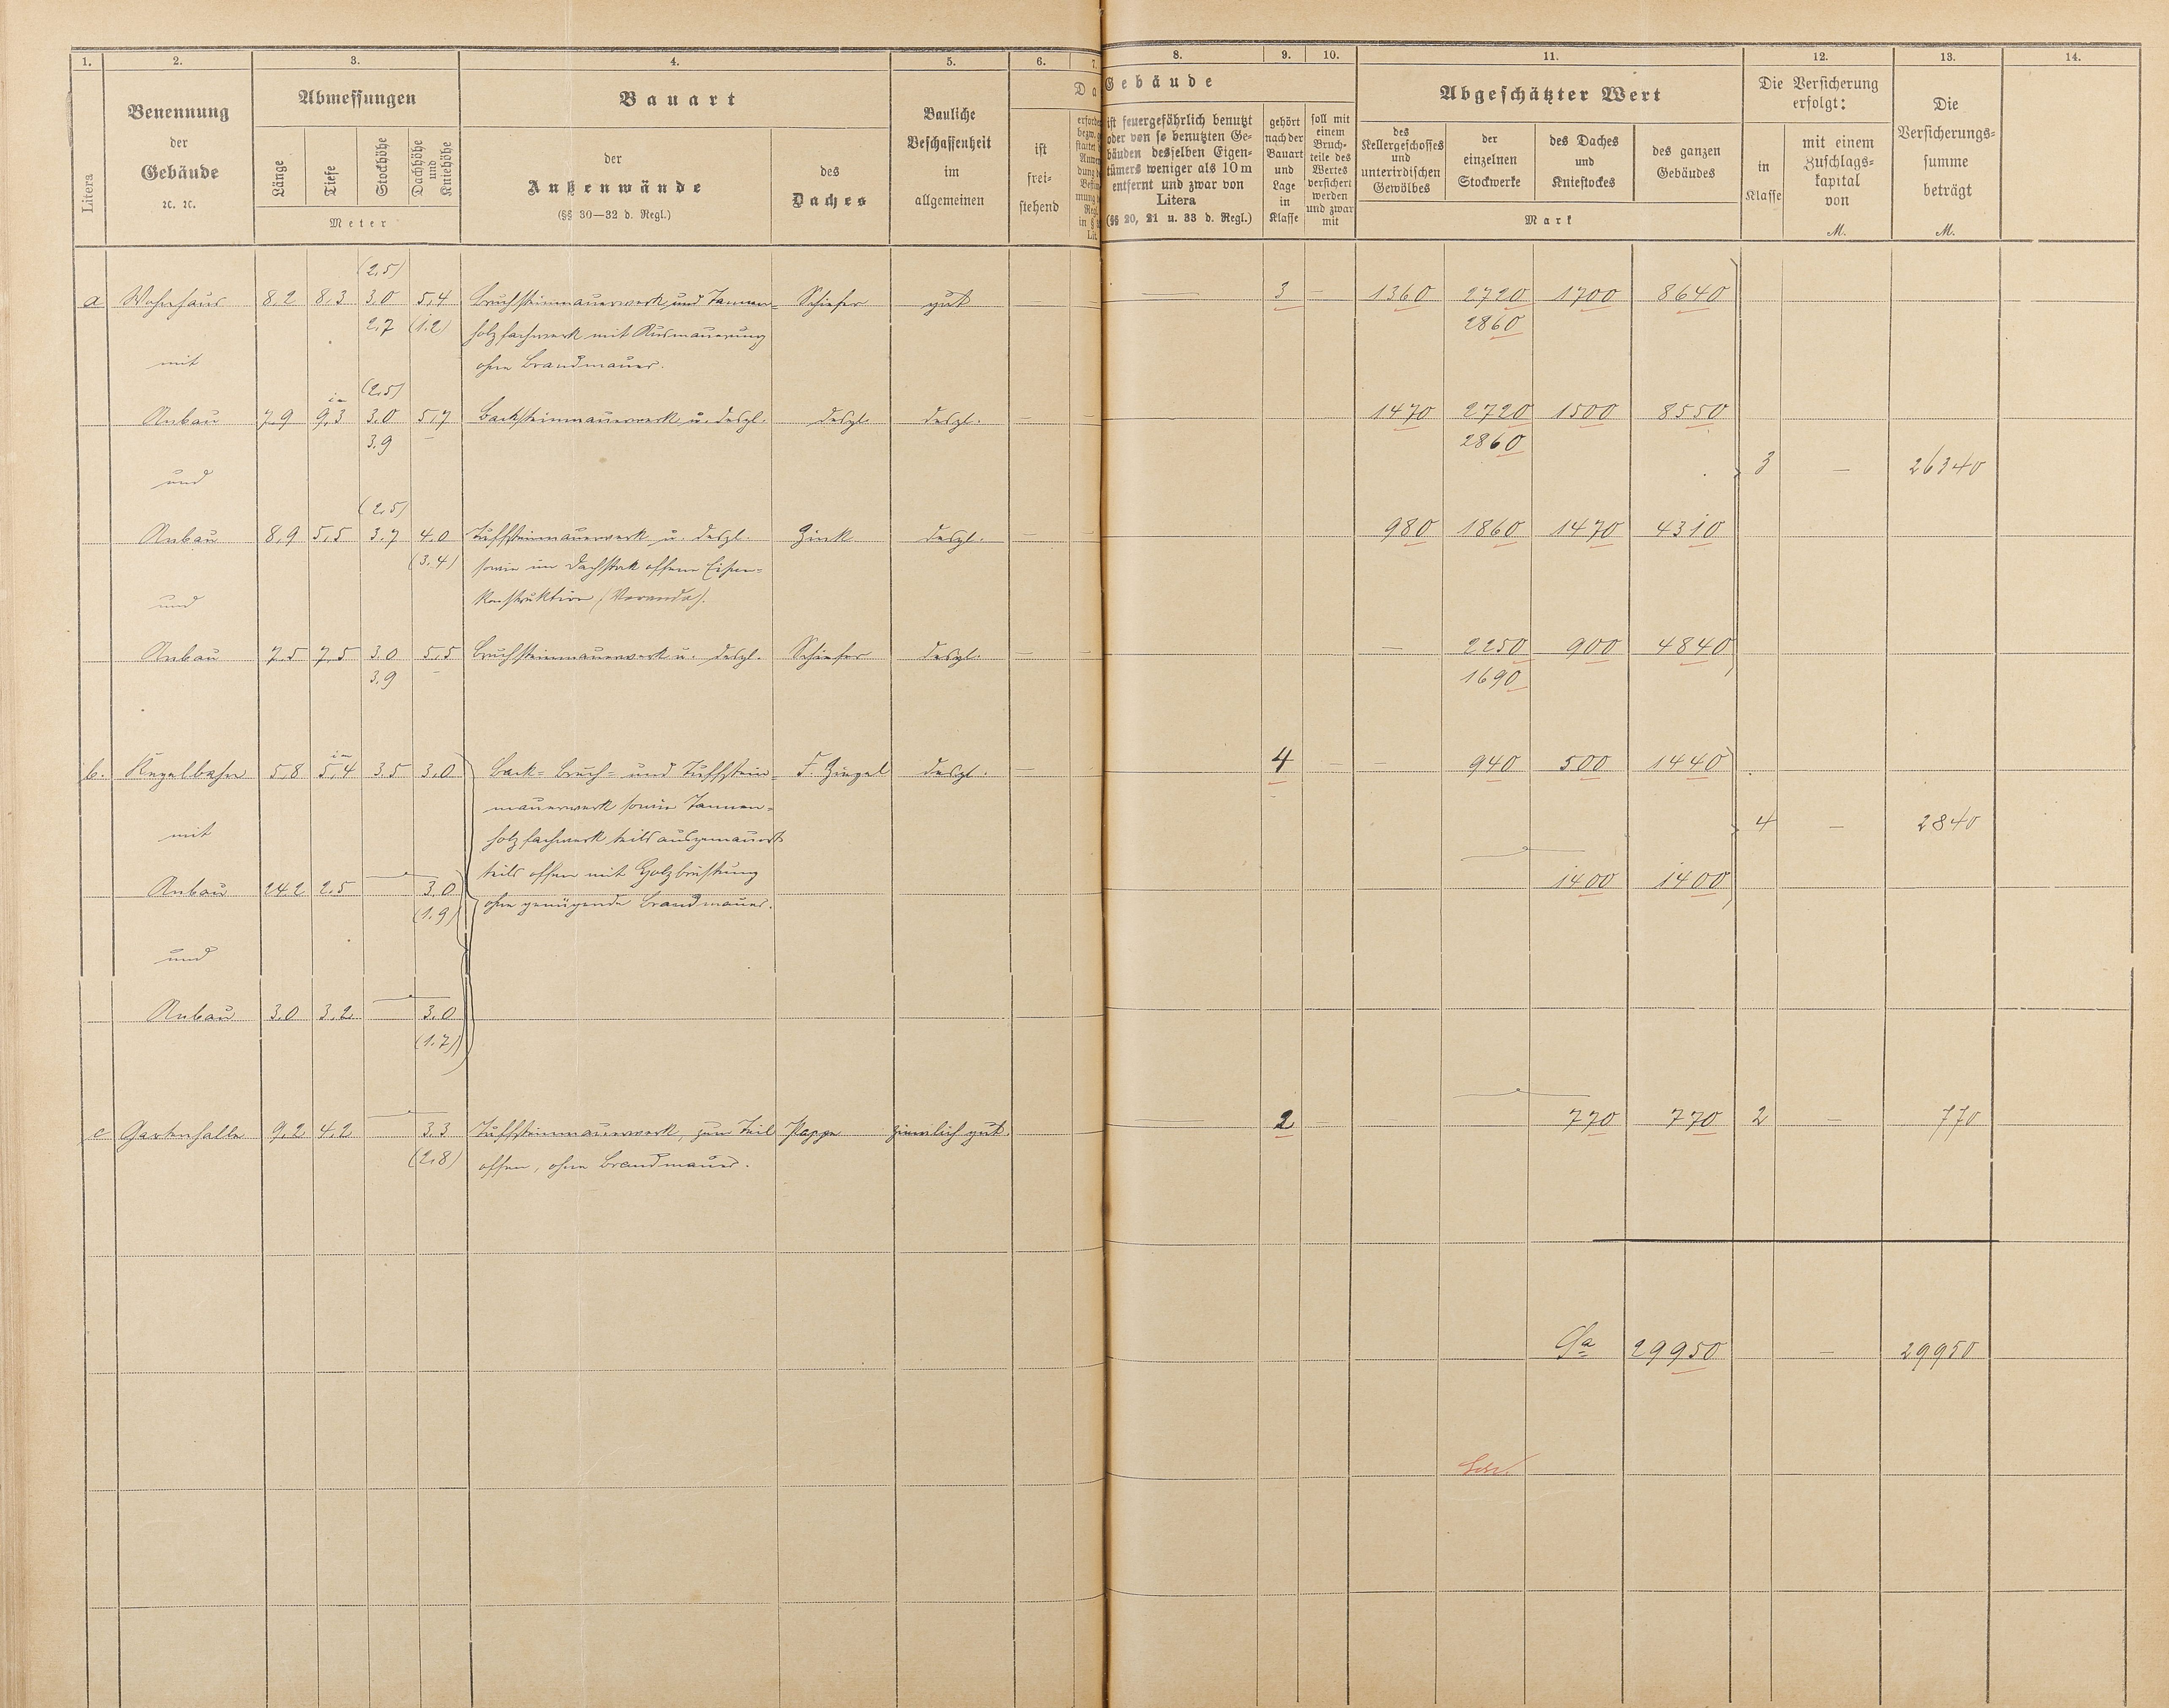 1. 2. 3. 4. 5. 6. 7. 8. 9. 10. 11. 12. 13. 14.
Litera
Benennung
der
Gebäude
ꝛc. ꝛc.
Abmessungen
Länge
Tiefe
Stockhöhe
Dachhöhe
und
Kniehöhe
Meter
Bauart
der
Außenwände
(§§ 30—32 d. Regl.)
des
Daches
Bauliche
Beschaffenheit
im
allgemeinen
Da
ist
frei-
stehend
Gebäude
ist feuergefährlich benutzt
oder von so benutzten Ge-
bäuden desselben Eigen-
tümers weniger als 10 m
entfernt und zwar von
Litera
(§§ 20, 21 u. 33 d. Regl.)
gehört
nach der
Bauart
und
Lage
in
Klasse
soll mit
einem
Bruch-
teile des
Wertes
versichert
werden
und zwar
mit
Abgeschätzter Wert
des
Kellergeschosses
und
unterirdischen
Gewölbes
der
einzelnen
Stockwerke
des Daches
und
Kniestockes
des ganzen
Gebäudes
Mark
Die Versicherung
erfolgt:
in
Klasse
mit einem
Zuschlags-
kapital
von
M.
Die
Versicherungs-
summe
beträgt
M.
(2,5)
a Wohnhaus 8,2 8,3 3,0 5,4 Bruchsteinmauerwerk und Tannen- Schiefer gut — — — 3 — 1360 2720 1700 8640
2,7 (1.2) holzfachwerk mit Ausmauerung 2860
mit ohne Brandmauer.
(2,5)
Anbau 7,9 i. 9,3 3,0 5,7 Backsteinmauerwerk u. desgl. desgl. desgl. — — 1470 2720 1500 8550
3,9 — 2860
und 3 — 26340
(2,5)
Anbau 8,9 5,5 3,7 4,0 Tuffsteinmauerwerk u. desgl. Zink desgl. — — 980 1860 1470 4310
(3.4) sowie im Dachstock offene Eisen-
und konstruktion (Veranda).
Anbau 7,5 7,5 3,0 5,5 Bruchsteinmauerwerk u. desgl. Schiefer desgl. — — — 2250 900 4840
3,9 — 1690
b. Kegelbahn 5,8 i. 5,4 3,5 3,0 Back- Bruch- und Tuffstein- F. Ziegel desgl. — — 4 — — 940 500 1440
mauerwerk sowie Tannen-
mit holzfachwerk teils ausgemauert 4 — 2840
teils offen mit Holzbrüstung
Anbau 24.2 2,5 — 3,0 1400 1400
(1.9) ohne genügende Brandmauer.
und
Anbau 3,0 3,2 — 3,0
(1.7)
c Gartenhalle 9,2 4,2 — 3,3 Tuffsteinmauerwerk, zum Teil Pappe ziemlich gut. — 2 — — 770 770 2 — 770
(2,8) offen, ohne Brandmauer.
Sa 29950 — 29950